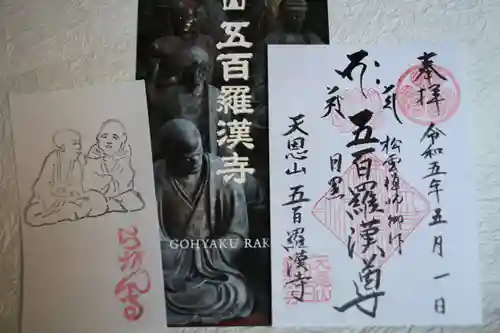 奉拝
令和五年五月一日
松雲禅師御作
五百羅漢尊
目黒
天恩山 五百羅漢寺
山五百羅漢寺
GOHYAKU RAK